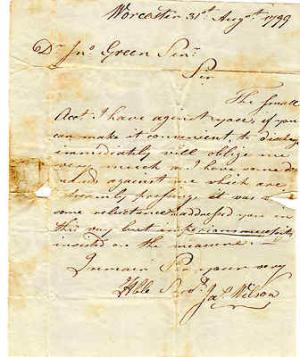 Worcester 31st Augst. 1799
Dr. Jno. Green Senr.
Sir
The small
Acct. I have against you, if you
can make it convenient to discharge
immediately will oblige me
very much as I have some de-
mands against me which are
extremely pressing it was with
some reluctance addressed you in
this way but imperious necessity
insisted on the measure.
I remain Sir your very
Hble Servt. Jas. Wilson